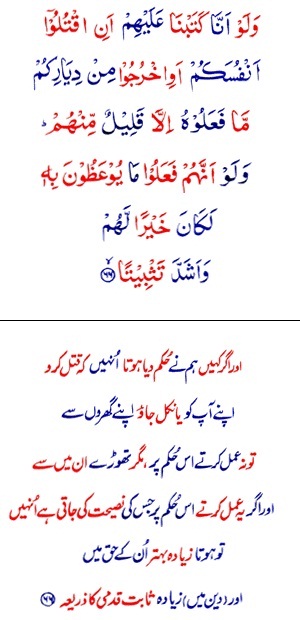 وَلَوْ اَنَّا كَتَبْنَا عَلَيْهِمْ اَنِ اقْتُلُوْٓا
اَنْفُسَكُمْ اَوِ اخْرُجُوْا مِنْ دِيَارِكُمْ
مَّا فَعَلُوْهُ اِلَّا قَلِيْلٌ مِّنْهُمْ ؕ
وَلَوْ اَنَّهُمْ فَعَلُوْا مَا يُوْعَظُوْنَ بِهٖ
لَكَانَ خَيْرًا لَّهُمْ
وَاَشَدَّ تَثْبِيْتًا ۙ﴿۶۶﴾
اور اگر کہیں ہم نے حُکم دیا ہوتا اُنہیں کہ قتل کرو
اپنے آپ کو یا نکل جاؤ اپنے گھروں سے
تو نہ عمل کرتے اس حُکم پر، مگر تھوڑے ان میں سے
اور اگر یہ عمل کرتے اس حُکم پر جس کی نصیحت کی جاتی ہے اُنہیں
تو ہوتا زیادہ بہتر اُن کے حق میں
اور (دین میں) زیادہ ثابت قدمی کا ذریعہ ﴿۶۶﴾